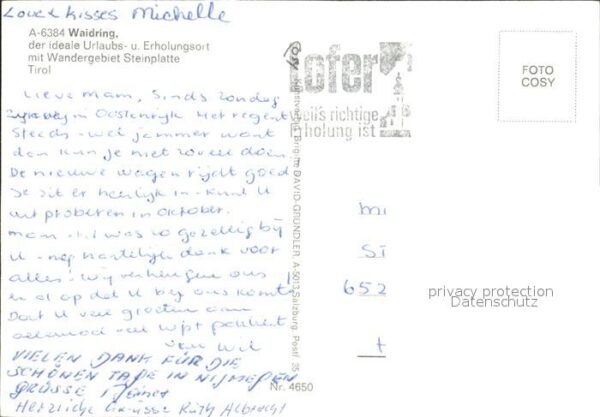 Love & kisses Michelle
A-6384 Waidring,
der ideale Urlaubs- u. Erholungsort
mit Wandergebiet Steinplatte
Tirol
Lofer
weil's richtige
Erholung ist
FOTO
COSY
Lieve Mam, Sinds Zondag
zijn wij in Oostenrijk Het regent
Steeds - wel jammer want
dan kun je niet zoveel doen.
De nieuwe wagen rijdt goed
Je zit er heerlijk in - Kunt U
uitproberen in Oktober.
Mam - het was zo gezellig bij
U - nog hartelijk dank voor
alles - Wij verheugen ons
er al op dat U bij ons komt!
Doet U veel groeten aan
allemaal
van Wil
VIELEN DANK FÜR DIE
SCHÖNEN TAGE IN NIJMEGEN
GRÜSSE
Herzliche Grüsse Ruth Albrecht
Kunstverlag Brigitte DAVID-GRÜNDLER, A-5013 Salzburg, Postf. 35
Nr. 4650
MI
ST
652
t
privacy protection
Datenschutz